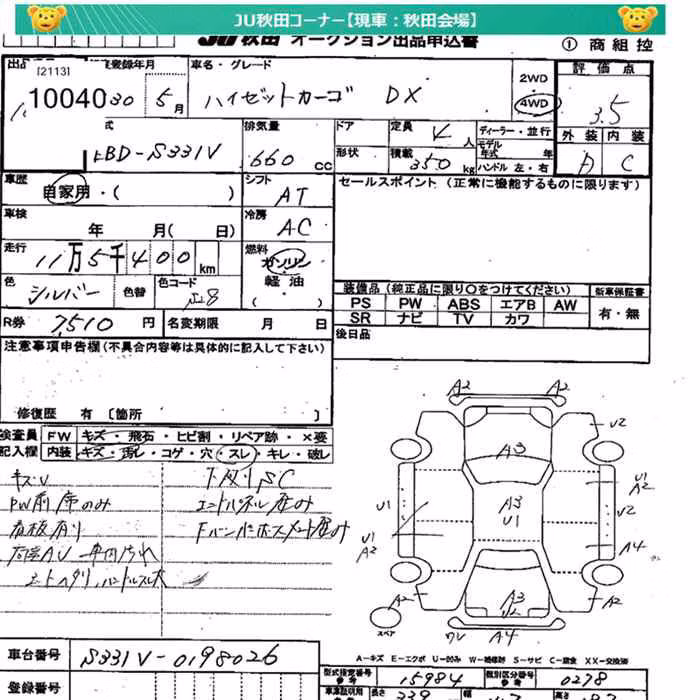 JU秋田コーナー【現車：秋田会場】
JU秋田 オークション出品申込書
① 商組控
[2113] 登録年月
10040 30 5月
車名・グレード
ハイゼットカーゴ DX
2WD
4WD
評価点
3.5
外装 内装
A C
EBD-S331V
排気量
660 cc
ドア
形状
定員 4 人
積載 350 kg
ディーラー・並行
モデル年式 年
ハンドル 左・右
車歴
自家用・( )
シフト
AT
セールスポイント (正常に機能するものに限ります)
車検
年 月( 日)
冷房
AC
走行
11万5千400km
燃料
ガソリン
軽油
( )
色
シルバー
色替
色コード
S28
装備品 (純正品に限り○をつけてください)
新車保証書
PS PW ABS エアB AW
有・無
SR ナビ TV カワ
R券 7510 円
名変期限 月 日
後日品
注意事項申告欄(不具合内容等は具体的に記入して下さい)
修復歴 有 〔箇所 〕
検査員 FW キズ・飛石・ヒビ割・リペア跡・×要
記入欄 内装 キズ・汚レ・コゲ・穴・スレ・キレ・破レ
キズV 下廻りSC
PW前席のみ エンドパネル歪み
看板有り
A2 A2
V2
A3
U1 A2
U1
A3
U1
V2
U1 A2
A4
A2
A3
A2
スペア
A4
A－キズ E－エクボ U－凹み W－補修跡 S－サビ C－腐食 XX－交換済
車台番号
S331V-0198026
型式指定番号 15984
類別区分番号 0278
登録番号
長さ 339